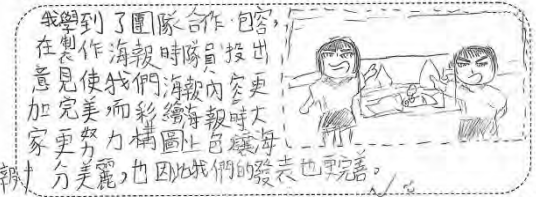 我學到了團隊合作、包容,
在製作海報時隊員投出
意見使我們海報內容更
加完美,而彩繪海報時大
家更努力構圖上色讓海
報十分美麗,也因此我們的發表也更完善。